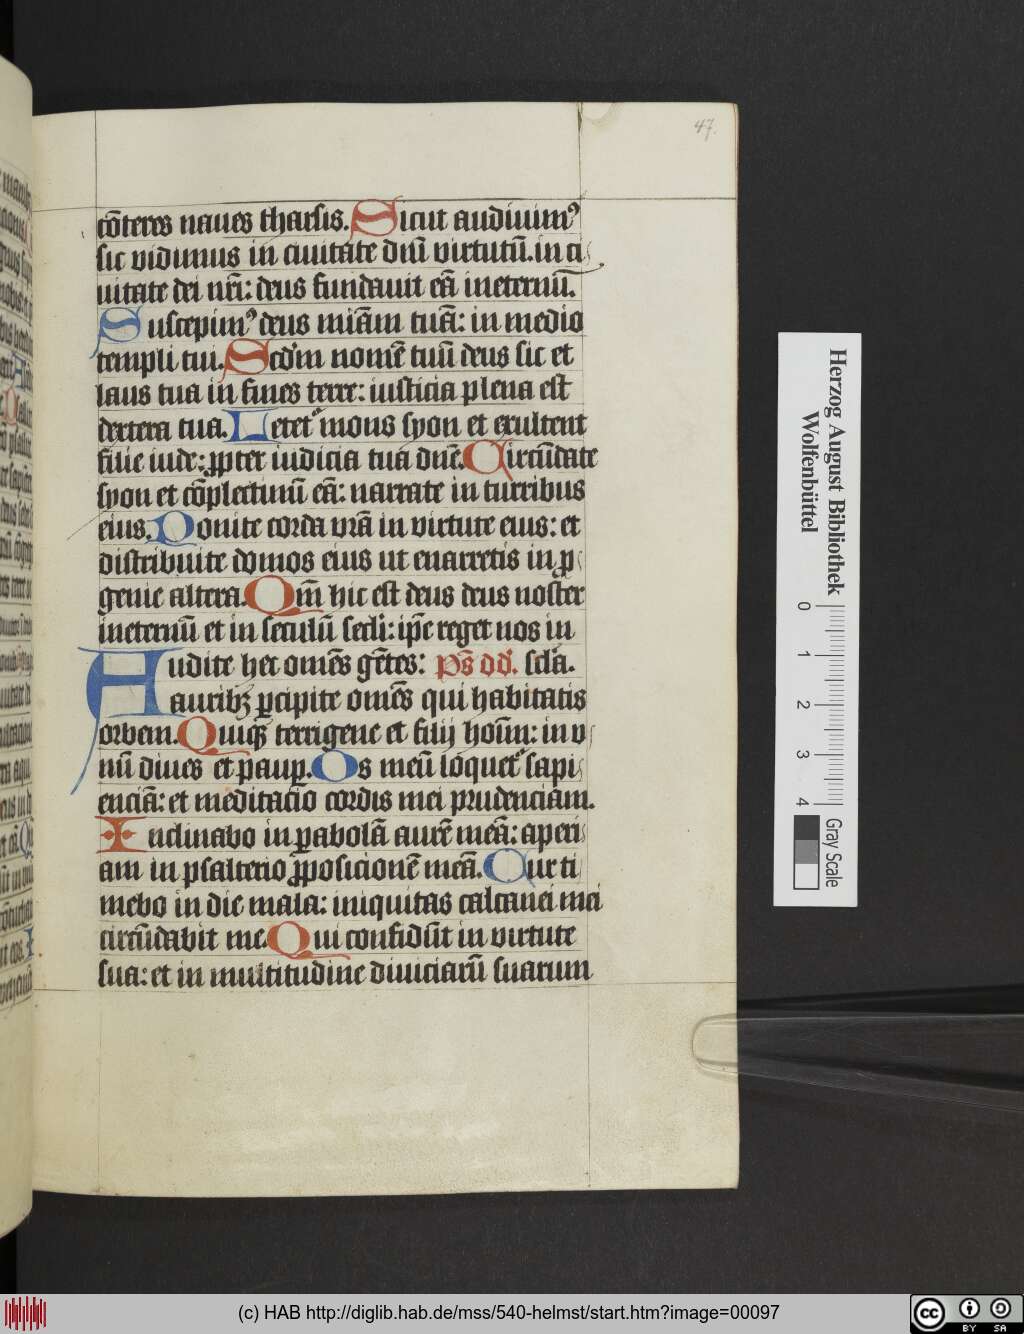 47.
cōteres naues tharsis. Sicut audiuimꝰ
sic vidimus in ciuitate dn̄i virtutū. in ci
uitate dei nr̄i: deus fundauit eā ineternū.
Suscepimꝰ deus miā̄m tuā: in medio
templi tui. Scd̄m nomē tuū deus sic et
laus tua in fines terre: iusticia plena est
dextera tua. Letet᷑ mons syon et exultent
filie iude: ꝓpter iudicia tua dn̄e. Circūdate
syon et cōplectimī eā: narrate in turribus
eius. Ponite corda vr̄a in virtute eius: et
distribuite domos eius ut enarretis in ꝓ
genie altera. Qm̄ hic est deus deus noster
ineternū et in seculū secl̄i: ip̄e reget nos in
Audite hec om̄es gētes: Ps̄ dd̄. scl̄a.
auribꝫ ꝑcipite om̄es qui habitatis
orbem. Quiqꝫ terrigene et filij hoīm: in v
nū diues et pauꝑ. Os meū loquet᷑ sapi
enciā: et meditacio cordis mei prudenciam.
Inclinabo in ꝑabolā aurē meā: aperi
am in psalterio ꝓposicionē meā. Cur ti
mebo in die mala: iniquitas calcanei mei
circūdabit me. Qui confidūt in virtute
sua: et in multitudine diuiciarū suarum
Herzog August Bibliothek
Wolfenbüttel
0 1 2 3 4
Gray Scale
(c) HAB http://diglib.hab.de/mss/540-helmst/start.htm?image=00097
cc
BY SA